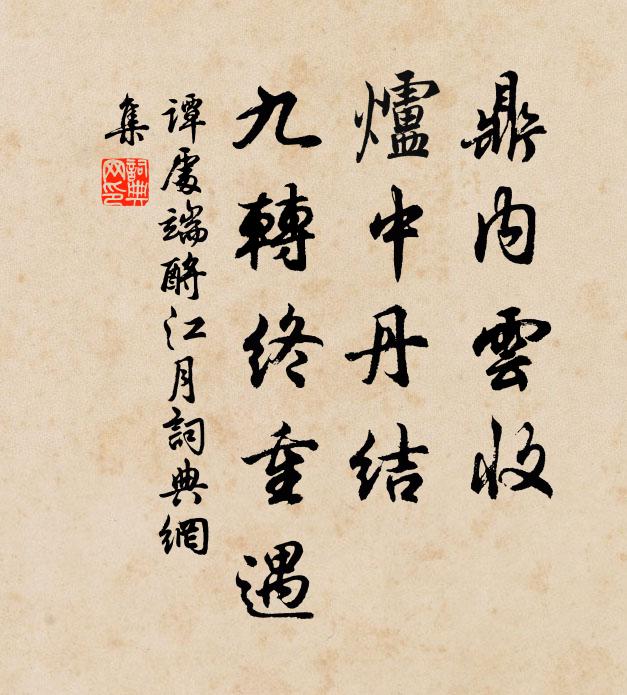 鼎内雲收
爐中丹結
九轉終重遇
譚處端酹江月詞典網
集
詞典
网印